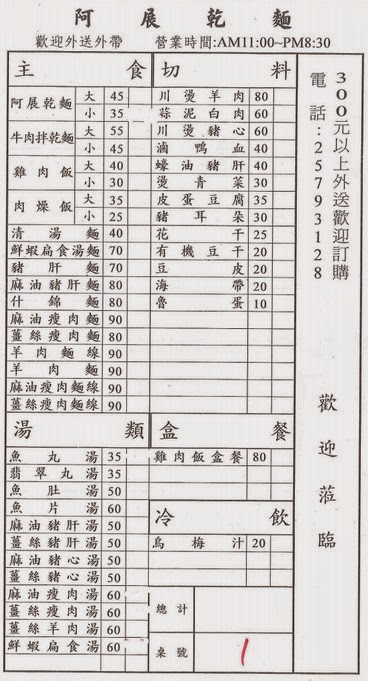 阿展乾麵
歡迎外送外帶 營業時間:AM11:00~PM8:30
主食
阿展乾麵 大 45
小 35
牛肉拌乾麵 大 55
小 45
雞肉飯 大 40
小 30
肉燥飯 大 35
小 25
清湯麵 40
鮮蝦扁食湯麵 70
豬肝麵 70
麻油豬肝麵 80
什錦麵 80
麻油瘦肉麵 90
薑絲瘦肉麵 80
羊肉麵線 90
羊肉麵 90
麻油瘦肉麵線 90
薑絲瘦肉麵線 90
切料
川燙羊肉 80
蒜泥白肉 60
川燙豬心 60
滷鴨血 40
蠔油豬肝 40
燙青菜 30
皮蛋豆腐 35
豬耳朵 30
花干 25
有機豆干 20
豆皮 20
海帶 20
魯蛋 10
湯類
魚丸湯 35
翡翠丸湯 35
魚肚湯 50
魚片湯 50
麻油豬肝湯 50
薑絲豬肝湯 50
麻油豬心湯 50
薑絲豬心湯 50
麻油瘦肉湯 60
薑絲瘦肉湯 60
薑絲羊肉湯 60
鮮蝦扁食湯 60
盒餐
雞肉飯盒餐 80
冷飲
烏梅汁 20
總計
桌號 1
300元以上外送歡迎訂購
電話:25793128
歡迎蒞臨